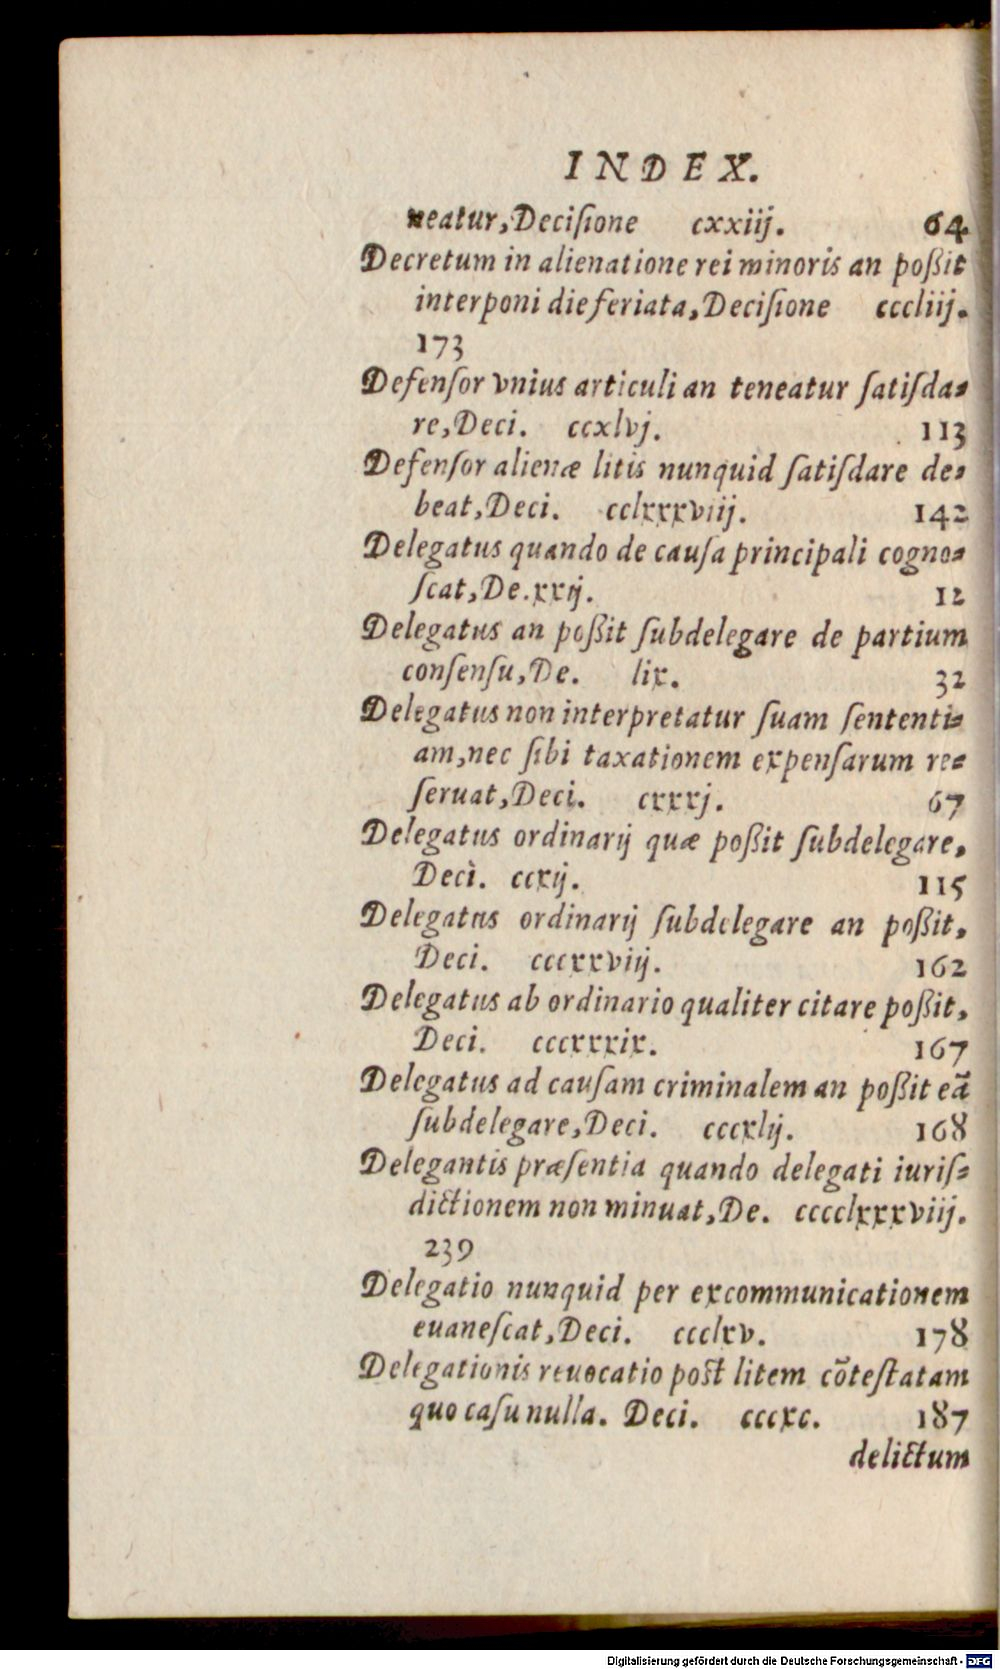 INDEX.
neatur, Deciſione cxxiij. 64
Decretum in alienatione rei minoris an poßit
interponi die feriata, Deciſione cccliij.
173
Defenſor vnius articuli an teneatur ſatiſda-
re, Deci. ccxlvj. 113
Defenſor alienæ litis nunquid ſatiſdare de-
beat, Deci. cclxxxviij. 142
Delegatus quando de cauſa principali cogno-
ſcat, De. xxij. 12
Delegatus an poßit ſubdelegare de partium
conſenſu, De. lix. 32
Delegatus non interpretatur ſuam ſententi-
am, nec ſibi taxationem expenſarum re-
ſeruat, Deci. cxxxj. 67
Delegatus ordinarij quæ poßit ſubdelegare,
Deci. ccxij. 115
Delegatus ordinarij ſubdelegare an poßit,
Deci. cccxxviij. 162
Delegatus ab ordinario qualiter citare poßit,
Deci. cccxxxix. 167
Delegatus ad cauſam criminalem an poßit eā
ſubdelegare, Deci. cccxlij. 168
Delegantis præſentia quando delegati iuriſ-
dictionem non minuat, De. cccclxxxviij.
239
Delegatio nunquid per excommunicationem
euaneſcat, Deci. ccclxv. 178
Delegationis reuocatio post litem cōteſtatam
quo caſu nulla. Deci. cccxc. 187
delictum
Digitalisierung gefördert durch die Deutsche Forschungsgemeinschaft - DFG